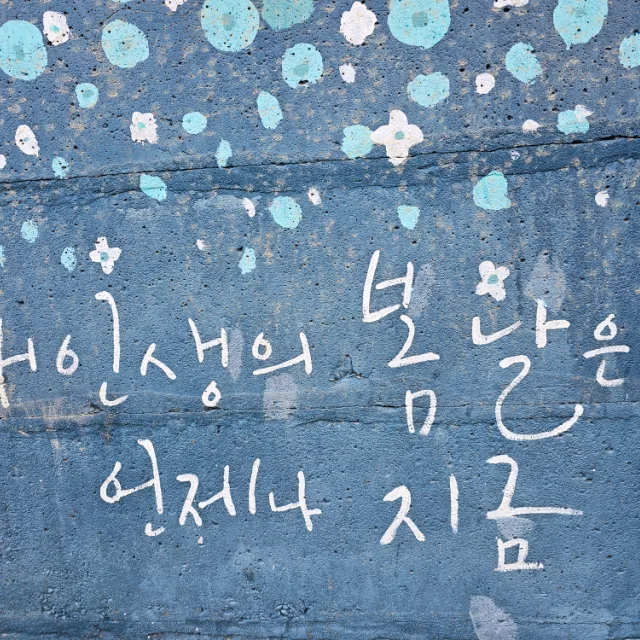 내 인생의 봄날은
언제나 지금